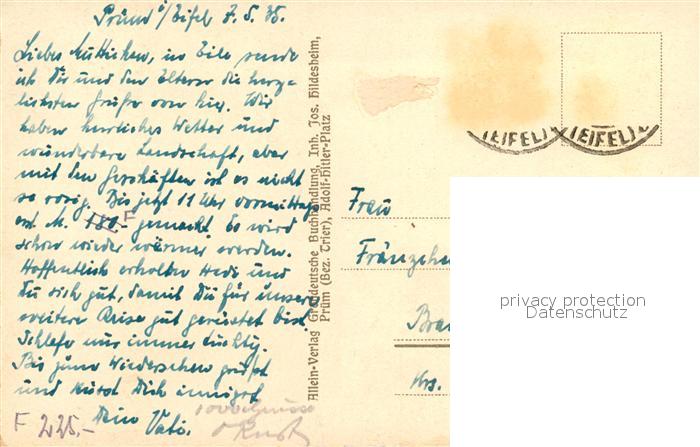 Prüm i/Eifel 7.5.35.
Liebes Muttichen, in Eile sende
ich Dir und den Eltern die herz-
lichsten Grüße von hier. Wir
haben herrliches Wetter und
wunderbare Landschaft, aber
mit den Geschäften ist es nicht
so rosig. Bis jetzt 11 Uhr vormittags
erst M. 180.- gemacht. Es wird
schon wieder wärmer werden.
Hoffentlich erholen Hedi und
Du sich gut, damit Du für unsere
weitere Reise gut gerüstet bist.
Schlafe nur immer tüchtig.
Bis zum Wiedersehen grüßt
und küsst Dich innigst
Dein Vati.
F 225.-
Allein-Verlag Großdeutsche Buchhandlung, Inh. Jos. Hildesheim,
Prüm (Bez. Trier), Adolf-Hitler-Platz
(EIFEL) (EIFEL)
Frau
Fränzchen
Bra
Krs.
privacy protection
Datenschutz